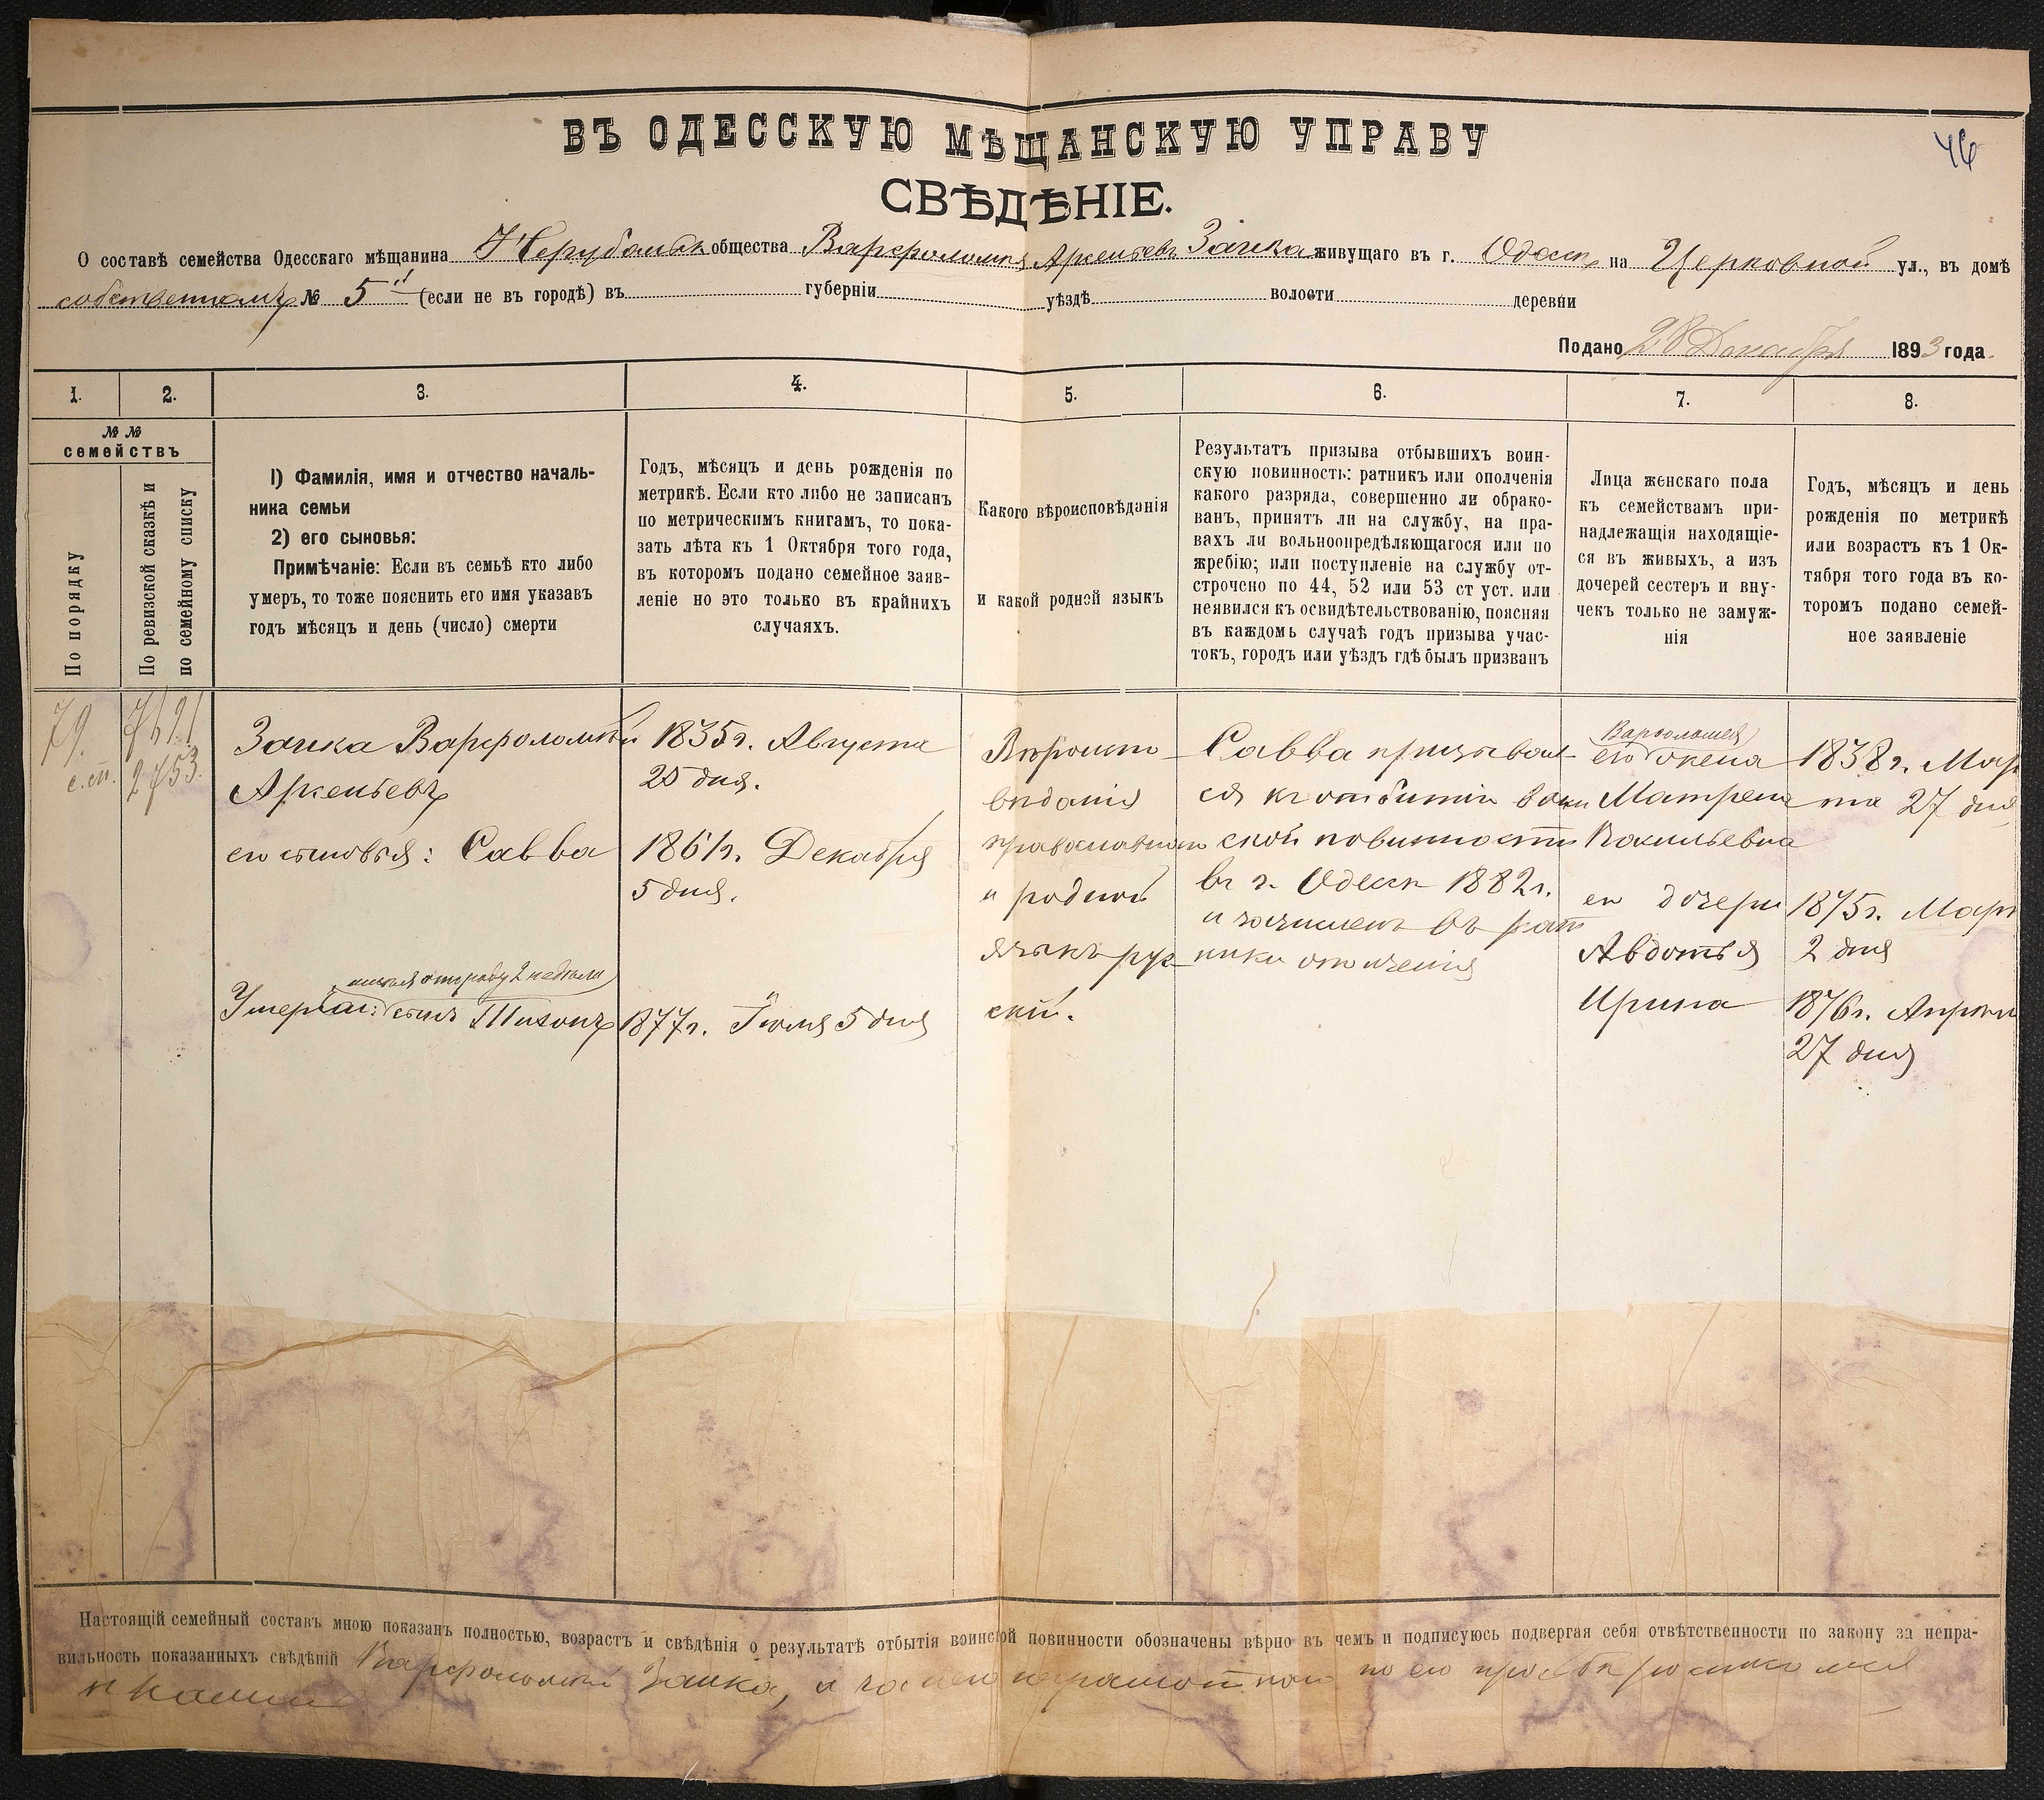 46
ВЪ ОДЕССКУЮ МѢЩАНСКУЮ УПРАВУ
СВѢДѢНІЕ.
О составѣ семейства Одесскаго мѣщанина Нерубайск общества Варфоломея Аркентьева Заика живущаго въ г. Одессѣ на Церковной ул., въ домѣ
собственномъ № 5й (если не въ городѣ) въ губерніи уѣздѣ волости деревни
Подано 28 Декабря 1893 года.
1. 2. 3. 4. 5. 6. 7. 8.
№ №
семействъ
По порядку
По ревизской сказкѣ и
по семейному списку
1) Фамилія, имя и отчество началь-
ника семьи
2) его сыновья:
Примѣчаніе: Если въ семьѣ кто либо
умеръ, то тоже пояснить его имя указавъ
годъ мѣсяцъ и день (число) смерти
Годъ, мѣсяцъ и день рожденія по
метрикѣ. Если кто либо не записанъ
по метрическимъ книгамъ, то пока-
зать лѣта къ 1 Октября того года,
въ которомъ подано семейное заяв-
леніе но это только въ крайнихъ
случаяхъ.
Какого вѣроисповѣданія
и какой родной языкъ
Результатъ призыва отбывшихъ воин-
скую повинность: ратникъ или ополченія
какого разряда, совершенно ли обрако-
ванъ, принятъ ли на службу, на пра-
вахъ ли вольноопредѣляющагося или по
жребію; или поступленіе на службу от-
строчено по 44, 52 или 53 ст уст. или
неявился къ освидѣтельствованію, поясняя
въ каждомъ случаѣ годъ призыва учас-
токъ, городъ или уѣздъ гдѣ былъ призванъ
Лица женскаго пола
къ семействамъ при-
надлежащія находящіе-
ся въ живыхъ, а изъ
дочерей сестеръ и вну-
чекъ только не замуж-
нія
Годъ, мѣсяцъ и день
рожденія по метрикѣ
или возрастъ къ 1 Ок-
тября того года въ ко-
торомъ подано семей-
ное заявленіе
79.
с.сп.
2753.
Заика Варфоломѣй
Аркентьевъ
его сыновья: Савва
Умерш: сынъ Тихонъ
1835г. Августа
25 дня.
1861г. Декабря
5 дня.
1877г. Іюля 5 дня
Вѣроиспо
вѣданія
православнаго
и родной
языкъ рус
скій.
Савва призывал-
ся къ отбытію воин
ской повинности
въ г. Одессѣ 1882г.
и зачисленъ въ рат
ники ополченія
Варфоломея
его жена
Матрена
Васильевна
его дочери
Авдотья
Ирина
1838г. Мар
та 27 дня
1875г. Март
2 дня
1876г. Апрѣля
27 дня
Настоящій семейный составъ мною показанъ полностью, возрастъ и свѣдѣнія о результатѣ отбытія воинской повинности обозначены вѣрно въ чемъ и подписуюсь подвергая себя отвѣтственности по закону за непра-
вильность показанныхъ свѣдѣній Варфоломей Заика, а за него неграмотнаго по его просьбѣ росписался